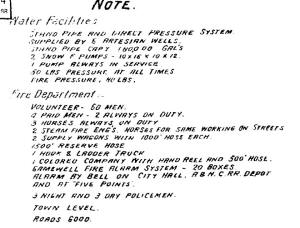 NOTE.
Water Facilities
STAND PIPE AND DIRECT PRESSURE SYSTEM.
SUPPLIED BY 6 ARTESIAN WELLS.
STAND PIPE CAPY. GAL'S
2 SNOW F PUMPS - 10 X 16 X 10 X 12.
1 PUMP ALWAYS IN SERVICE
50 LBS PRESSURE AT ALL TIMES
FIRE PRESSURE, 90 LBS.
Fire Department.
VOLUNTEER - 60 MEN.
4 PAID MEN - 2 ALWAYS ON DUTY.
3 HORSES ALWAYS ON DUTY
2 STEAM FIRE ENG'S. HORSES FOR SAME WORKING ON STREETS
2 SUPPLY WAGONS WITH 1000' HOSE EACH.
1500' RESERVE HOSE
1 HOOK & LADDER TRUCK
1 COLORED COMPANY WITH HAND REEL AND 500' HOSE.
GAMEWELL FIRE ALARM SYSTEM - 20 BOXES
ALARM BY BELL ON CITY HALL, A & N. C. R.R. DEPOT
AND AT "FIVE POINTS".
3 NIGHT AND 3 DAY POLICEMEN.
TOWN LEVEL.
ROADS GOOD.